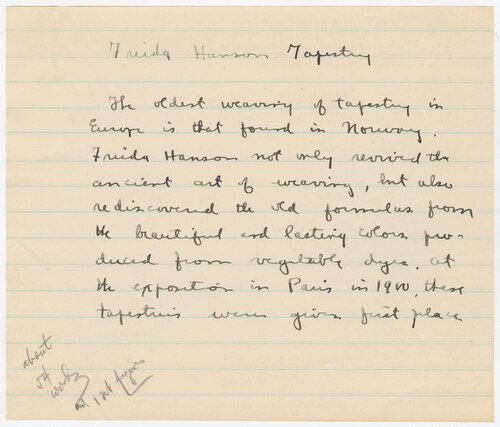 Freida Hanson Tapestry
The oldest weaving of tapestry in
Europe is that found in Norway.
Freida Hanson not only revived the
ancient art of weaving, but also
rediscovered the old formulas from
the beautiful and lasting colors pro-
duced from vegetable dyes. at
the exposition in Paris in 1900, these
tapestries were given first place
about
54
words
and 1 set figures